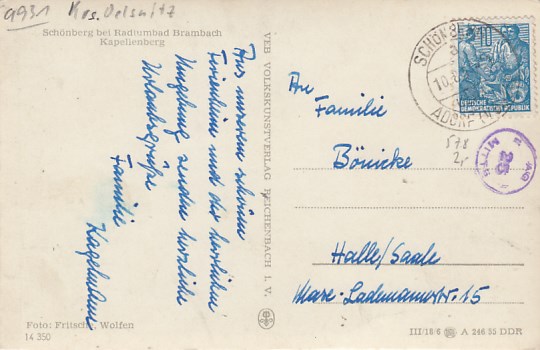 9931 Krs. Oelsnitz
Schönberg bei Radiumbad Brambach
Kapellenberg
Aus unserem schönen
Ferienheim und der herrlichen
Umgebung senden herzliche
Urlaubsgrüße
Familie
Foto: Fritsche, Wolfen
14 350
VEB VOLKSKUNSTVERLAG REICHENBACH i. V.
SCHÖNBERG
ADORF (V
DEUTSCHE
DEMOKRATISCHE REPUBLIK
578
25
An
Familie
Bönicke
Halle/Saale
Marx-Lademannstr. 15
III/18/6 A 246 55 DDR